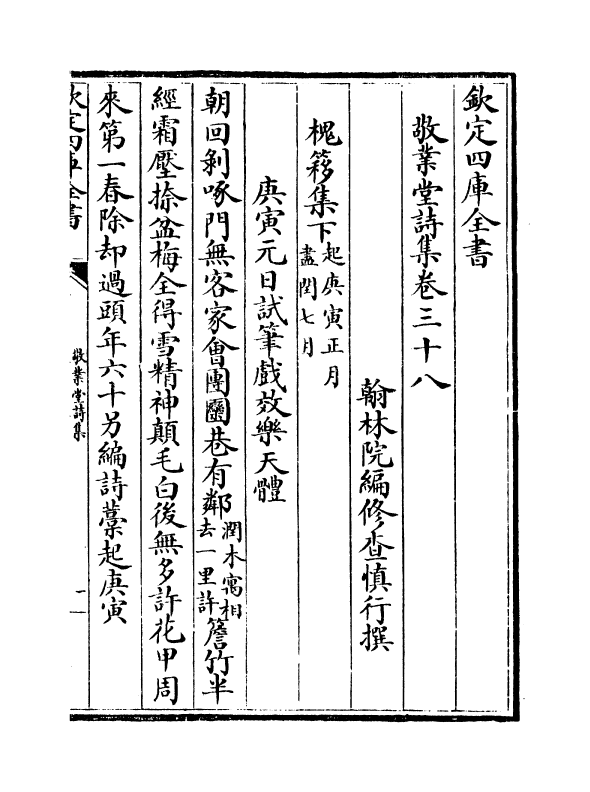 欽定四庫全書
敬業堂詩集卷三十八
翰林院編修查慎行撰
槐簃集下起庚寅正月
盡閏七月
庚寅元日試筆戲效樂天體
朝回剝啄門無客家會團圞巷有鄰潤木寓相
去一里許簷竹半
經霜壓捺盆梅全得雪精神顛毛白後無多許花甲周
來第一春除却過頭年六十另編詩藁起庚寅
欽定四庫全書
敬業堂詩集
一